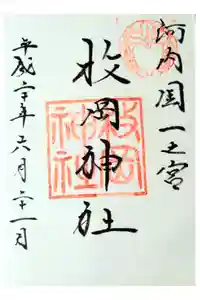 河内国一之宮
枚岡神社
平成二十年六月二十一日